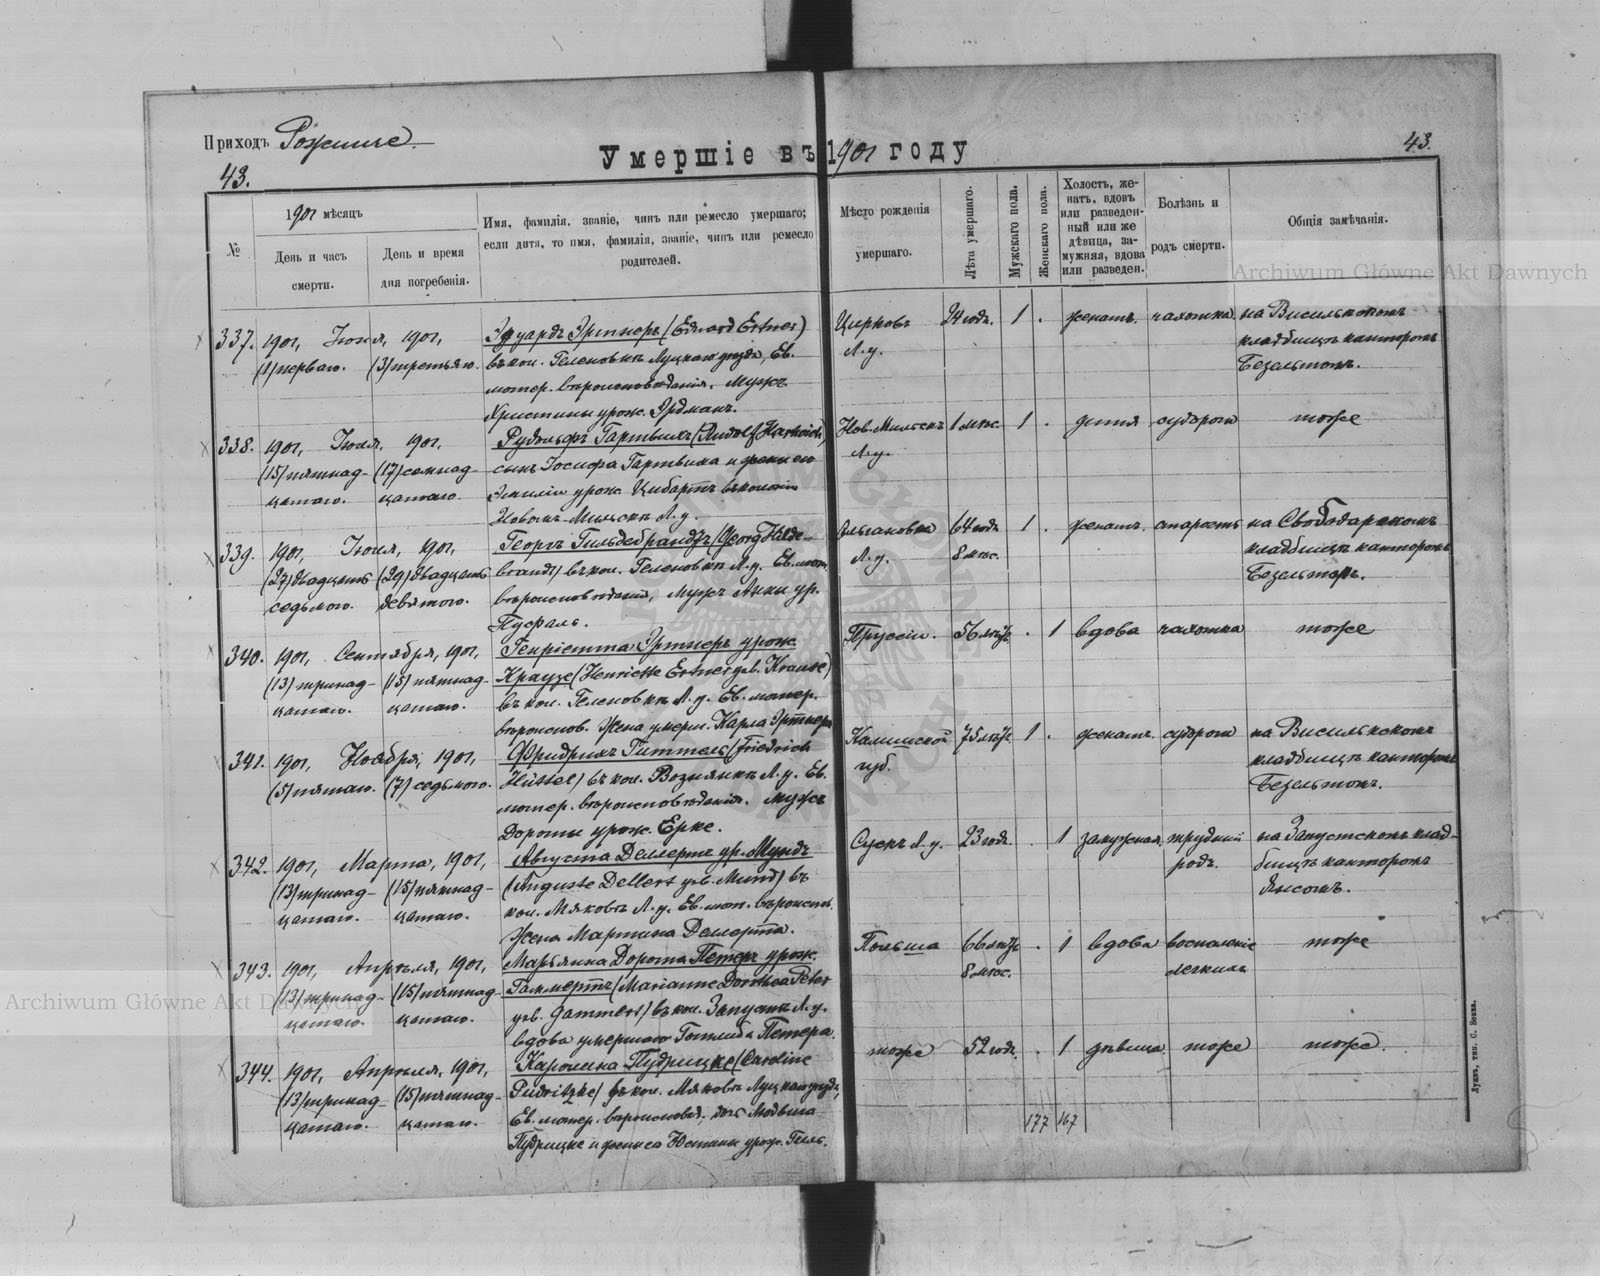 Приходъ Рожище.
Умершіе въ 1901 году
43.
43.
№
1901 мѣсяцъ
День и часъ смерти.
День и время дня погребенія.
Имя, фамилія, званіе, чинъ или ремесло умершаго;
если дитя, то имя, фамилія, званіе, чинъ или ремесло
родителей.
Мѣсто рожденія
умершаго.
Лѣта умершаго.
Мужскаго пола.
Женскаго пола.
Холостъ, же-
натъ, вдовъ
или разведен-
ный или же
дѣвица, за-
мужняя, вдова
или разведен.
Болѣзнь и
родъ смерти.
Общія замѣчанія.
Archiwum Główne Akt Dawnych
337. 1901, Іюня, 1901, Эдуардъ Эртнеръ (Eduard Ertner) 34 годъ. 1 . женатъ. чахотка. на
(1) перваго. (3) третьяго. въ кол. Геленовкѣ Луцкаго уѣзда, Ев. Л. у. кладбищѣ канторомъ
лютер. вѣроисповѣданія. Мужъ Безельтомъ.
Христины урож. Эрдманъ.
338. 1901, 1901, Рудольфъ Гартвихъ (Rudolf Hartwich) 1 мѣс. 1 . дитя судороги тоже
(15) пятнад- (17) семнад- сынъ Іосифа Гартвиха и жены его Л. у.
цатаго. цатаго. Эмиліи урож. Цибартъ въ колоніи
Новомъ-Мильскѣ Л. у.
339. 1901, 1901, Георгъ Гильдебрандтъ (Georg Hilde- 64 года 1 . женатъ. старость
(27) двадцать (29) двадцать brandt) въ кол. Геленовкѣ Л. у. Ев. лют. Л. у. 8 мѣс. кладбищѣ канторомъ
седьмого. девятого. вѣроисповѣданія, Мужъ Анны ур. Безельтомъ.
340. 1901, Сентября, 1901, Генріетта Эртнеръ урож. Пруссіи. 56 лѣтъ . 1 вдова чахотка тоже
(13) тринад- (15) пятнад- Краузе (Henriette Ertner geb. Krause)
цатаго. цатаго. въ кол. Геленовкѣ Л. у. Ев. лютер.
вѣроиспов. Жена умерш. Карла Эртнера
341. 1901, Ноября, 1901, Фридрихъ Гиттель (Friedrich Калишской 75 лѣтъ 1 . женатъ. судороги на
(5) пятаго. (7) седьмого. Hüttel) въ кол. Вознянкѣ Л. у. Ев. губ. кладбищѣ канторомъ
лютер. вѣроисповѣданія. Мужъ Безельтомъ.
Дороты урож. Ерке.
342. 1901, Марта, 1901, Августа Деллертъ ур. Мундъ Л. у. 23 год. . 1 замужняя. трудный на Запустскомъ клад-
(13) тринад- (15) пятнад- (Auguste Dellert geb. Mund) въ родъ. бищѣ канторомъ
цатаго. цатаго. кол. Мяковъ Л. у. Ев. лют. вѣроиспов.
Жена Мартина Деллерта.
343. 1901, Апрѣля, 1901, Марьянна Дорота Петеръ урож. Польша 66 лѣтъ . 1 вдова воспаленіе тоже
(13) тринад- (15) пятнад- Гаммертъ (Marianne Dorothea Peter 8 мѣс. легкихъ
цатаго. цатаго. geb. Gammert) въ кол. Запустѣ Л. у.
вдова умершаго Готлиба Петера.
344. 1901, Апрѣля, 1901, Каролина Пудрицке (Caroline тоже 52 год. . 1 дѣвица тоже тоже.
(13) тринад- (15) пятнад- Pudritzke) въ кол. Мяковъ Луцкаго уѣзда,
цатаго. цатаго. Ев. лютер. вѣроисповѣд., дочь
Пудрицке и жены его Юстины урож.
177 167
Archiwum Główne Akt Dawnych
Луцкъ, тип. С. Бокна.